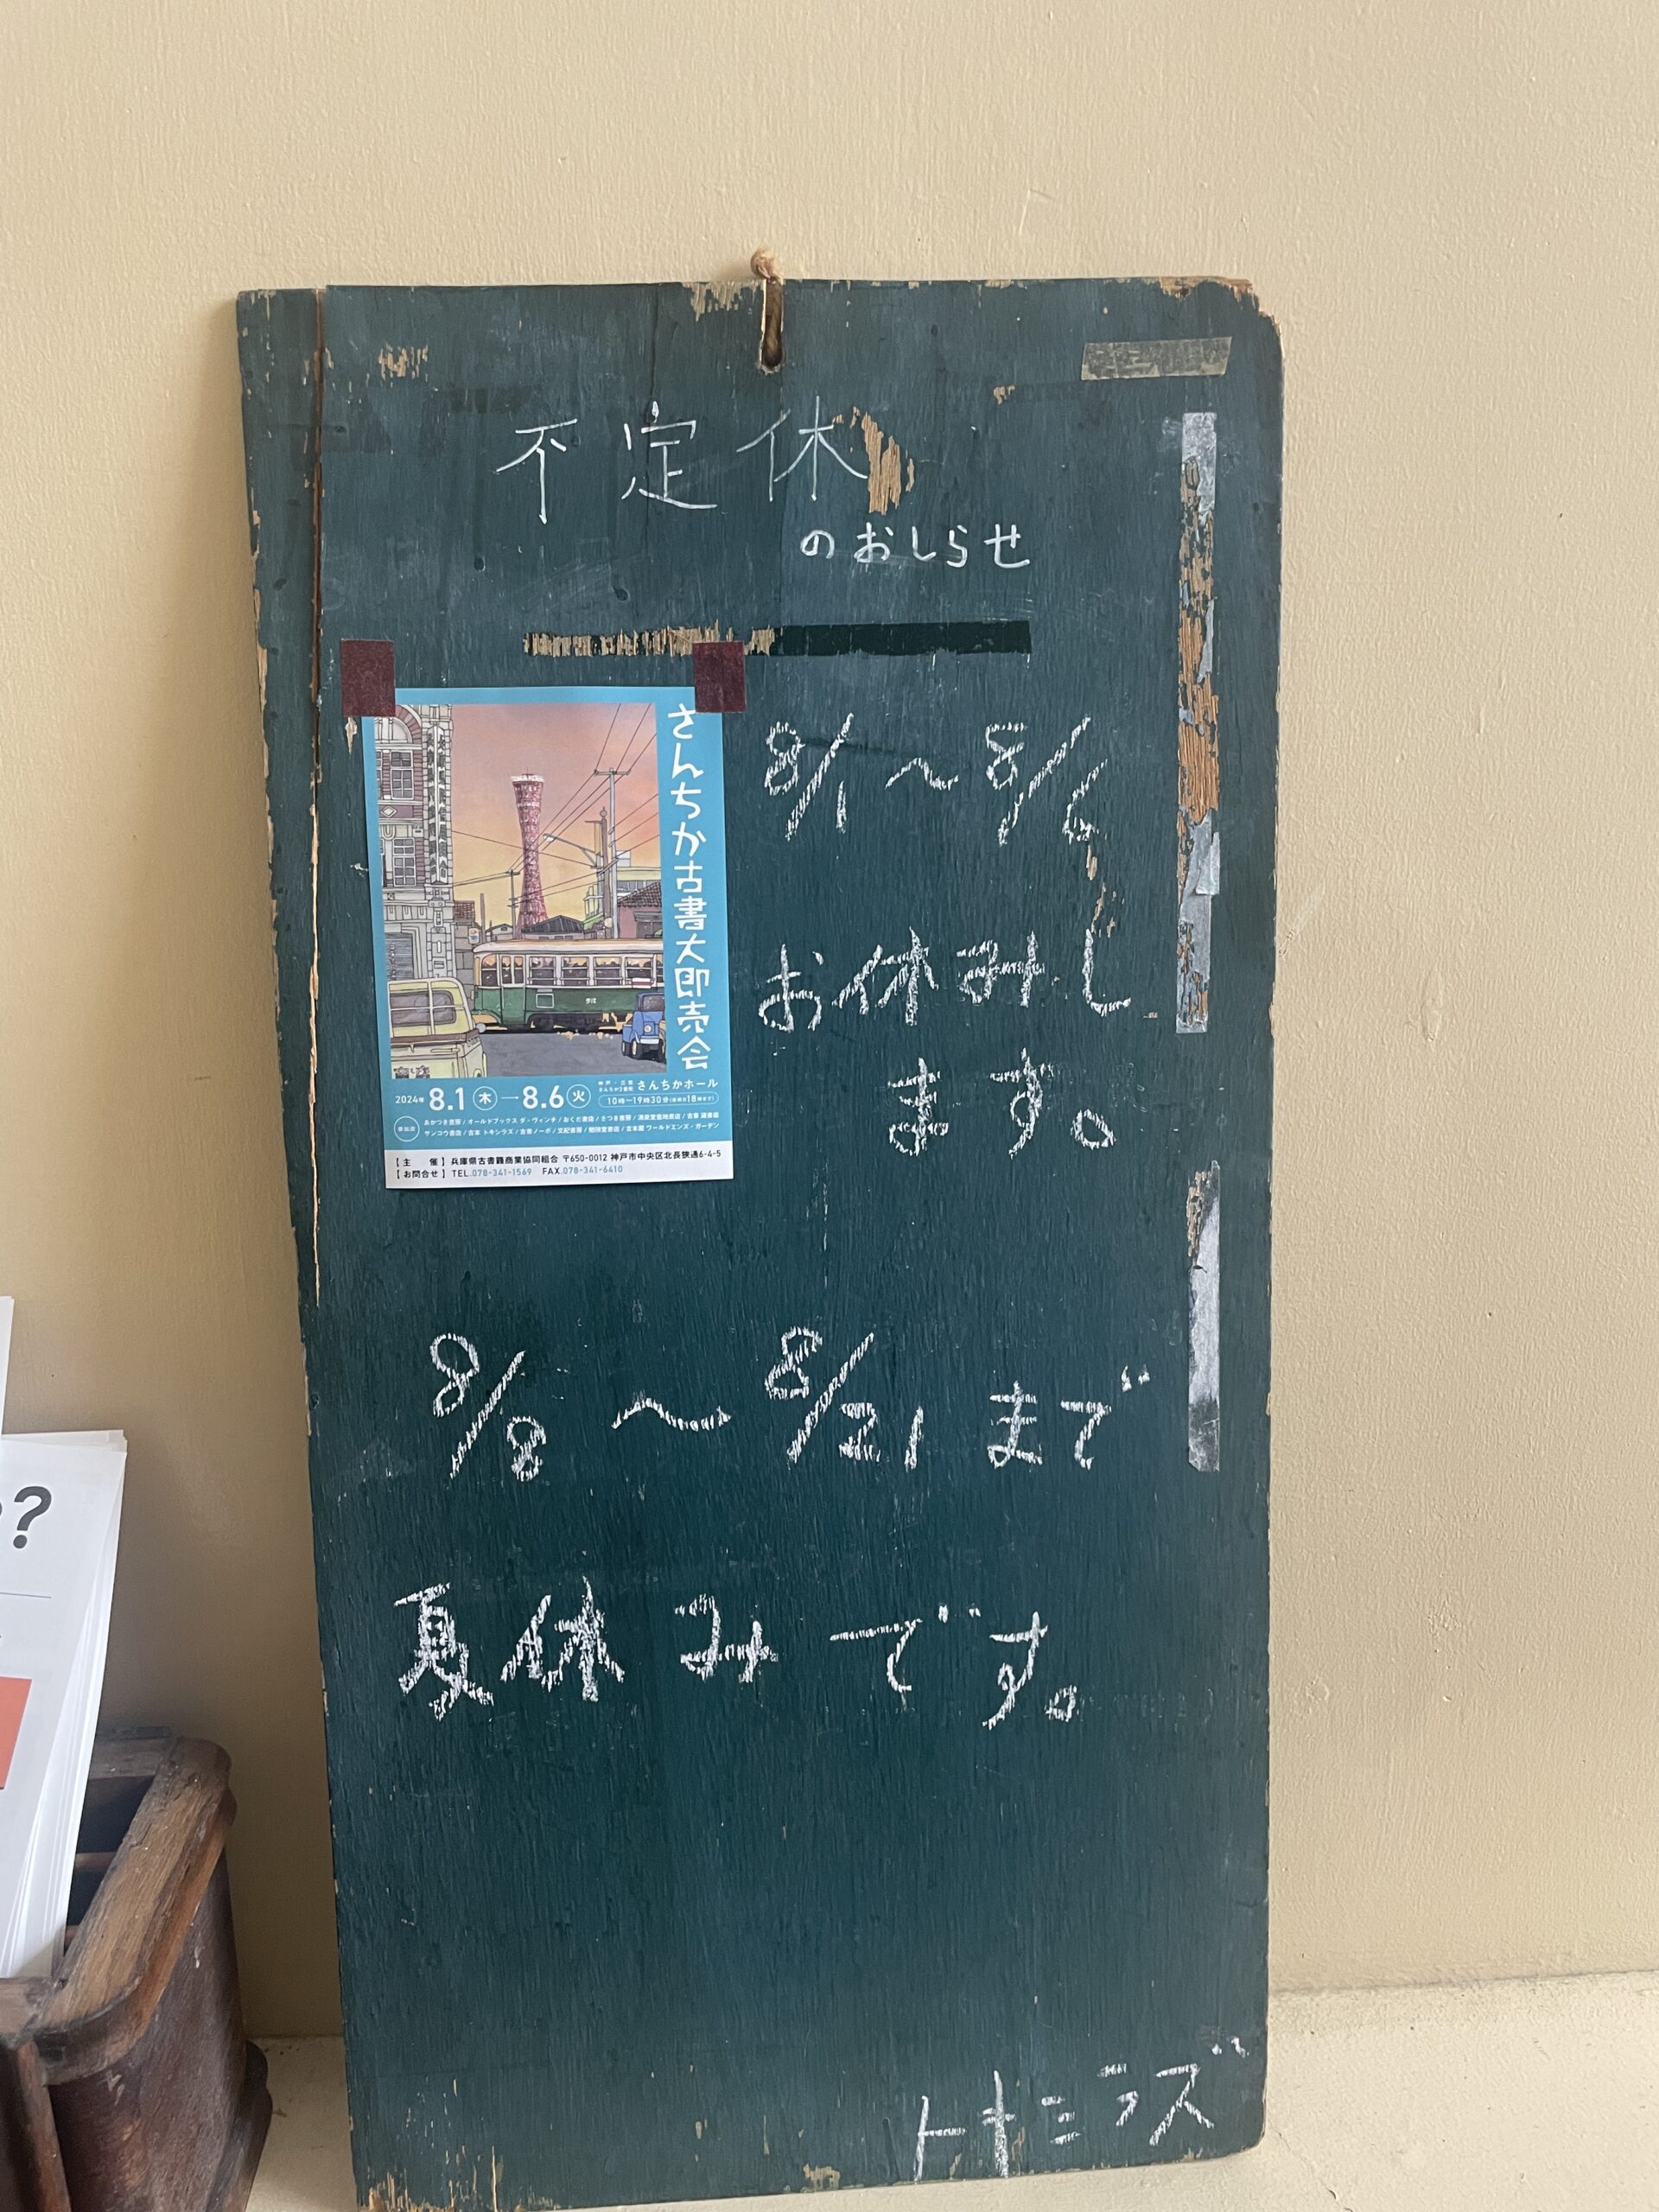 不定休
のおしらせ
8/1 〜 8/6
お休みし
ます。
さんちか古書大即売会
2024年 8.1 木 — 8.6 火
さんちかホール
10時〜19時30分(最終日18時まで)
参加店
あかつき書房 / オールドブックス ダ・ヴィンチ / おくだ書店 / さつき書房 / 清泉堂倉地書店 / 古書 蔵書館
サンコウ書店 / 古本 トキシラズ / 古書ノーボ / 文紀書房 / 勉強堂書店 / 古本屋 ワールドエンズ・ガーデン
【主 催】兵庫県古書籍商業協同組合 〒650-0012 神戸市中央区北長狭通6-4-5
【お問合せ】TEL.078-341-1569 FAX.078-341-6410
8/8 〜 8/21 まで
夏休みです。
トキシラズ
?